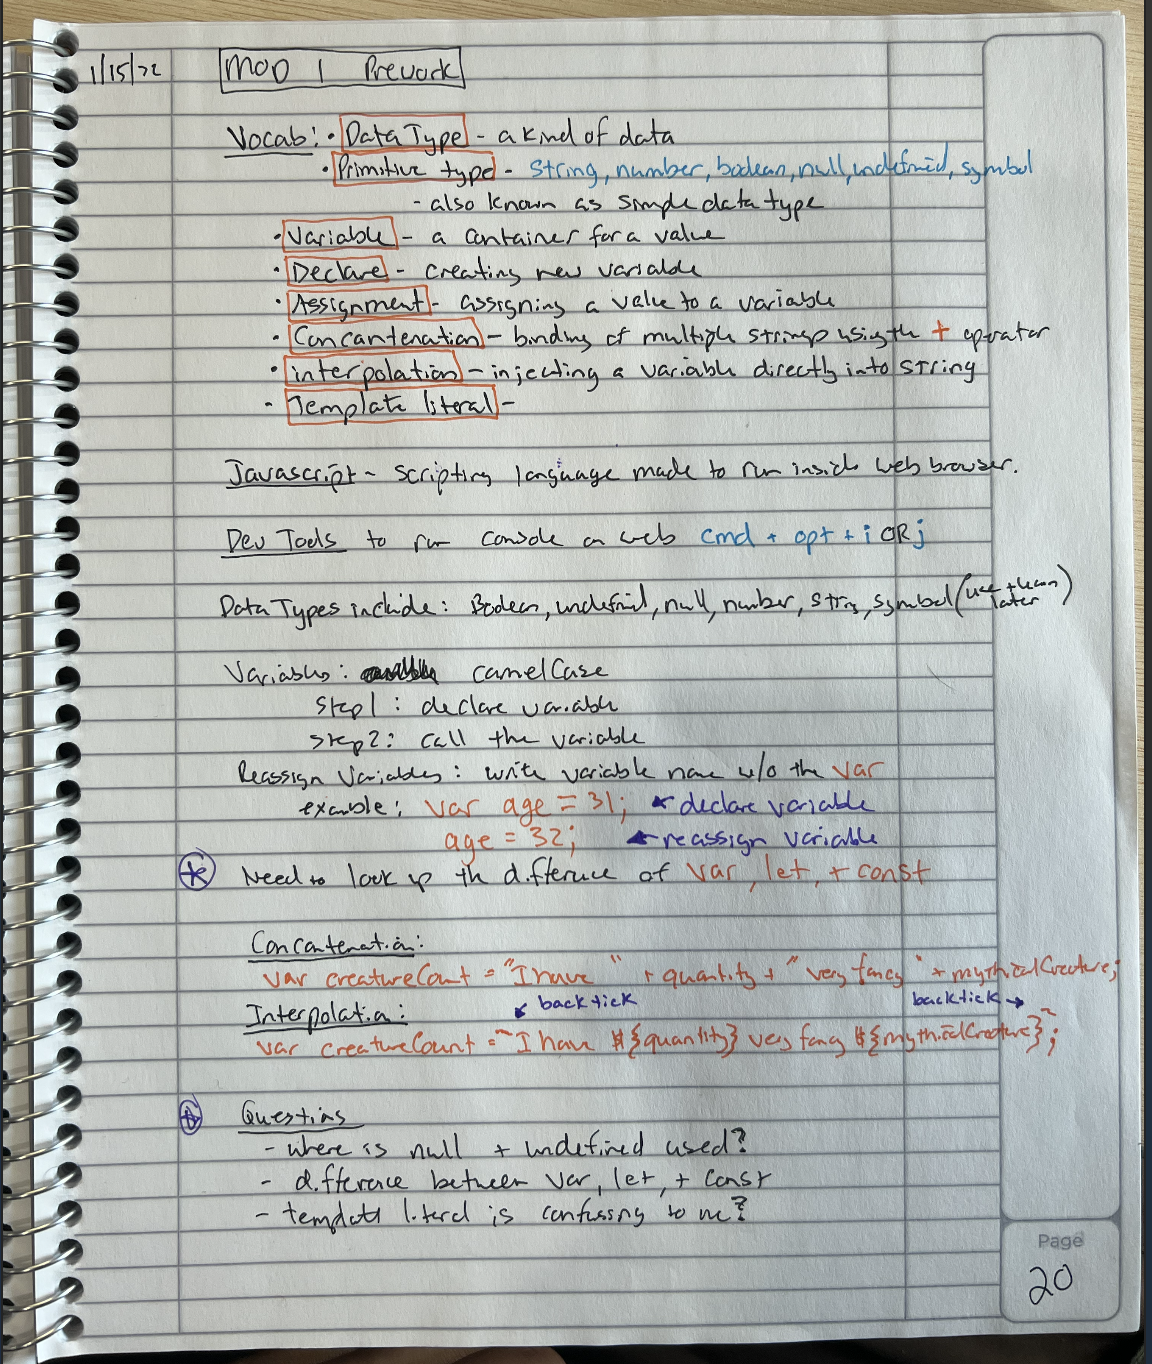 1/15/22 MOD 1 Prework
Vocab: • Data Type - a kind of data
• Primitive type - String, number, boolean, null, undefined, symbol
- also known as simple data type
• Variable - a container for a value
• Declare - creating new variable
• Assignment - assigning a value to a variable
• Concantenation - binding of multiple strings using the + operator
• interpolation - injecting a variable directly into string
• Template literal -
Javascript - scripting language made to run inside web browser.
Dev Tools to run console on web cmd + opt + i OR j
Data Types include: Boolean, undefined, null, number, string, symbol (use + learn later)
Variables: camelCase
Step 1: declare variable
Step 2: call the variable
Reassign Variables: write variable name w/o the var
example: var age = 31; ← declare variable
age = 32; ← reassign variable
* Need to look up the difference of var, let, + const
Concantenation:
var creatureCount = "I have " + quantity + " very fancy " + mythicalCreature;
↙ backtick backtick →
Interpolation:
var creatureCount = `I have ${quantity} very fancy ${mythicalCreature}`;
* Questions
- where is null + undefined used?
- difference between var, let, + const
- template literal is confusing to me?
Page
20